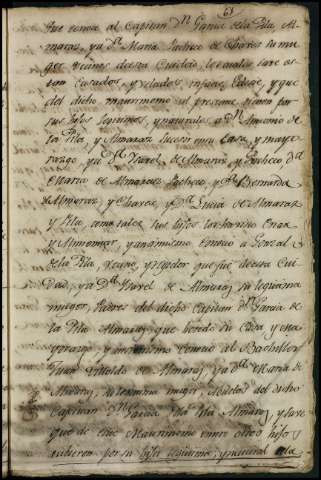 63
que conoce al Capitan Dn Garcia de la Pila, Al-
maras, y a Da Maria Pacheco de Chaves su mu-
ger vecinos de esta Ciudad, los cuales save es-
tan casados, y velados infacie Eclesie, y que
del dicho matrimonio al presente tienen por
sus hijos lexitimos, y naturales a Dn Antonio de
la Pila, y Almaraz sucesor en su Casa, y mayo-
razgo, y a Da Ysavel de Almaras, y Pacheco, Da
Maria de Almaraz Pacheco, y Da Bernarda
de Almaraz, y Chaves, y Da Lucia de Almaraz
y Pila, a los tales sus hijos
y Alimentar, y asimismo conocio a Gonzal
de la Pila, Vecino, y Regidor que fue de esta Cui-
dad, y a Da Ysavel de Almaraz su legitima
muger, Padres del dicho Capitan Dn Garcia de
la Pila Almaraz, que heredo su Casa, y mayo-
razgo, y asimismo conocio al Bachiller
Juan de Almaraz, y a Da Maria de
su lexitima muger, Abuelos del dicho
Capitan Dn Garcia de la Pila Almaraz, y save
que de este Matrimonio entre otros hijos
tubieron por su hija legitima, y natural a la